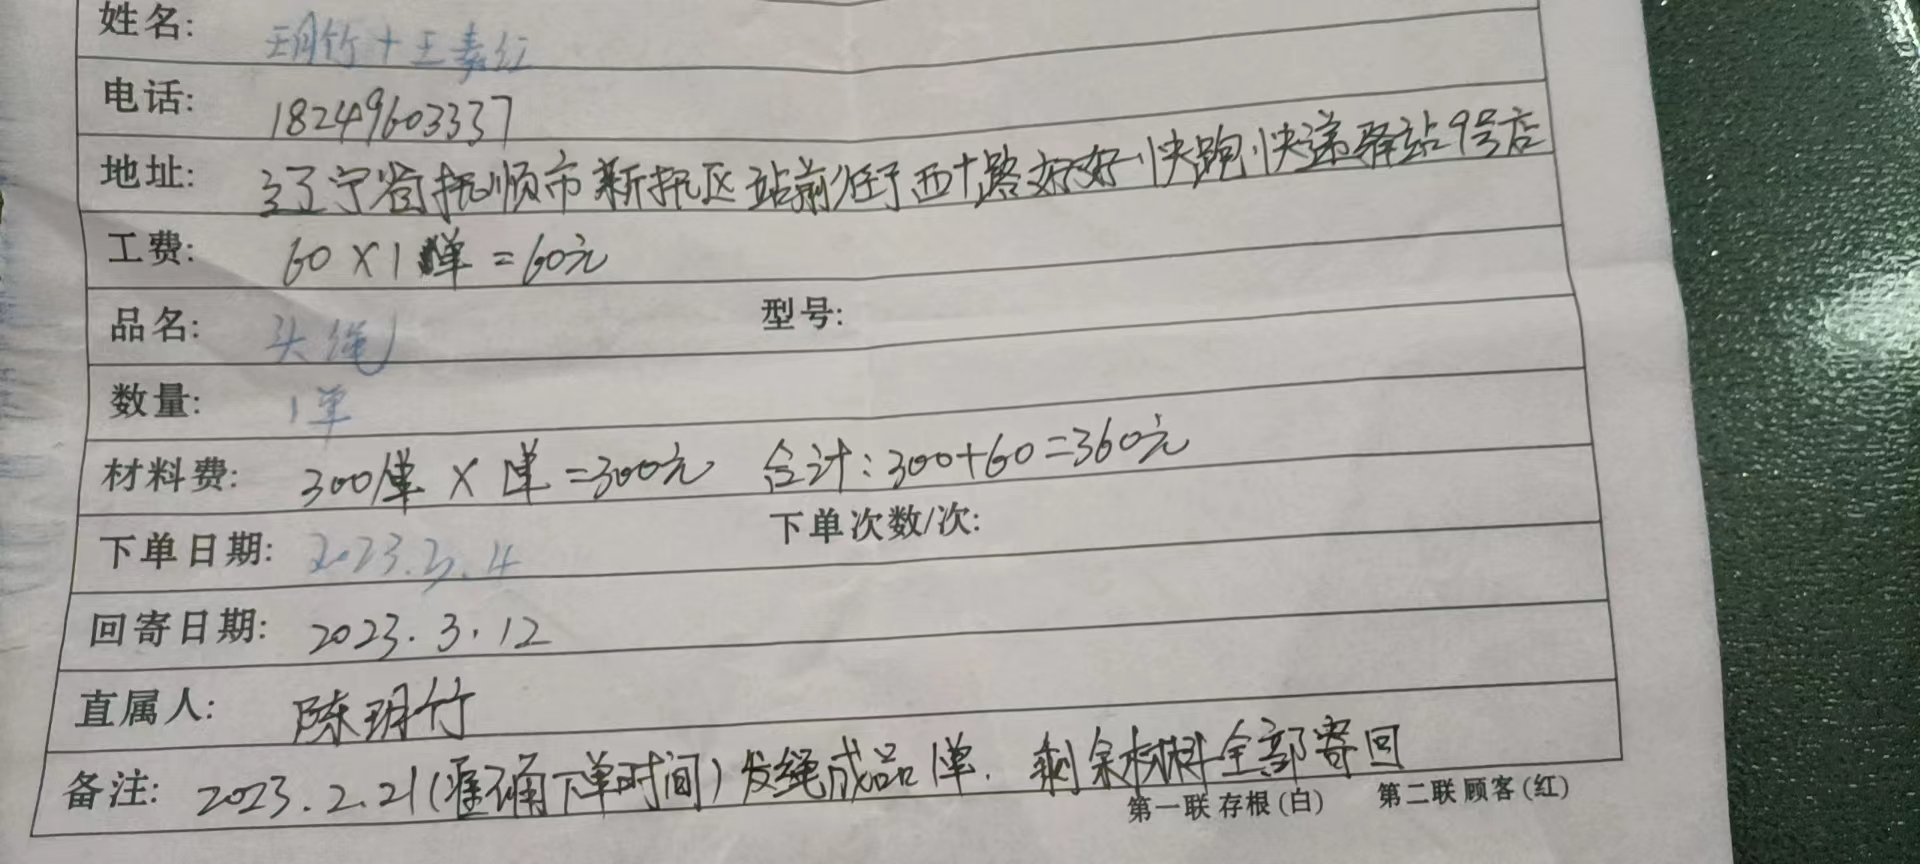 姓名: 玥竹+王素红
电话: 18249603337
地址: 辽宁省抚顺市新抚区站前街西十路好好快跑快递驿站9号店
工费: 60×1单=60元
品名: 头绳 型号:
数量: 1单
材料费: 300/单×1单=300元 合计:300+60=360元
下单日期: 2023.3.4 下单次数/次:
回寄日期: 2023.3.12
直属人: 陈玥竹
备注: 2023.2.21(准确下单时间)发绳成品1单.剩余材料全部寄回
第一联 存根(白) 第二联 顾客(红)